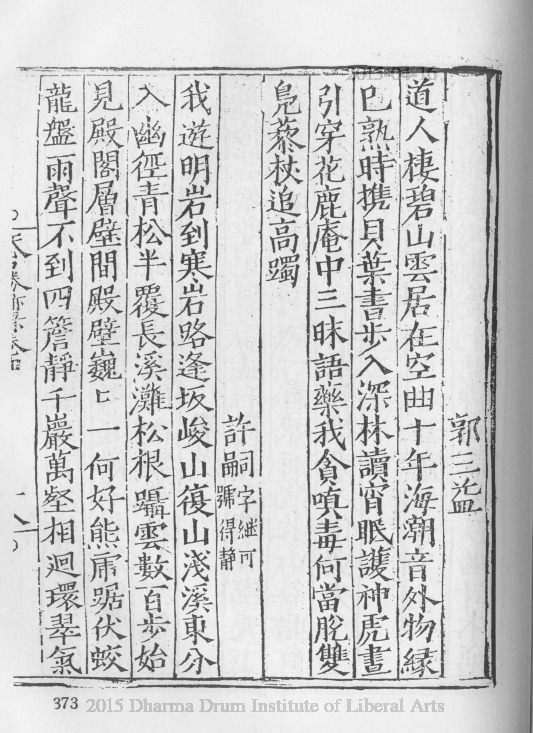 郭三益
道人棲碧山雲居在空曲十年海潮音外物緣
巳熟時携貝葉書步入深林讀宵眠護神虎晝
引穿花鹿庵中三昧語藥我貪嗔毒何當脫雙
鳧藜杖追高躅
許嗣字繼可號得靜
我遊明岩到寒岩路逢坂峻山復山淺溪東分
入幽徑青松半覆長溪灘松根躡雲數百步始
見殿閣層壁間殿壁巍〻一何好熊𦋺踞伏蛟
龍盤雨聲不到四簷靜千巖萬壑相迴環翠氣
天台勝蹟錄卷四
十八
373 2015 Dharma Drum Institute of Liberal Arts